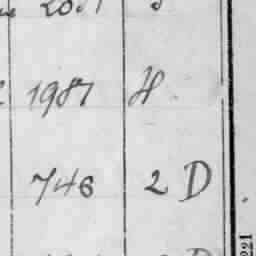 1987 H
746 2 D
221